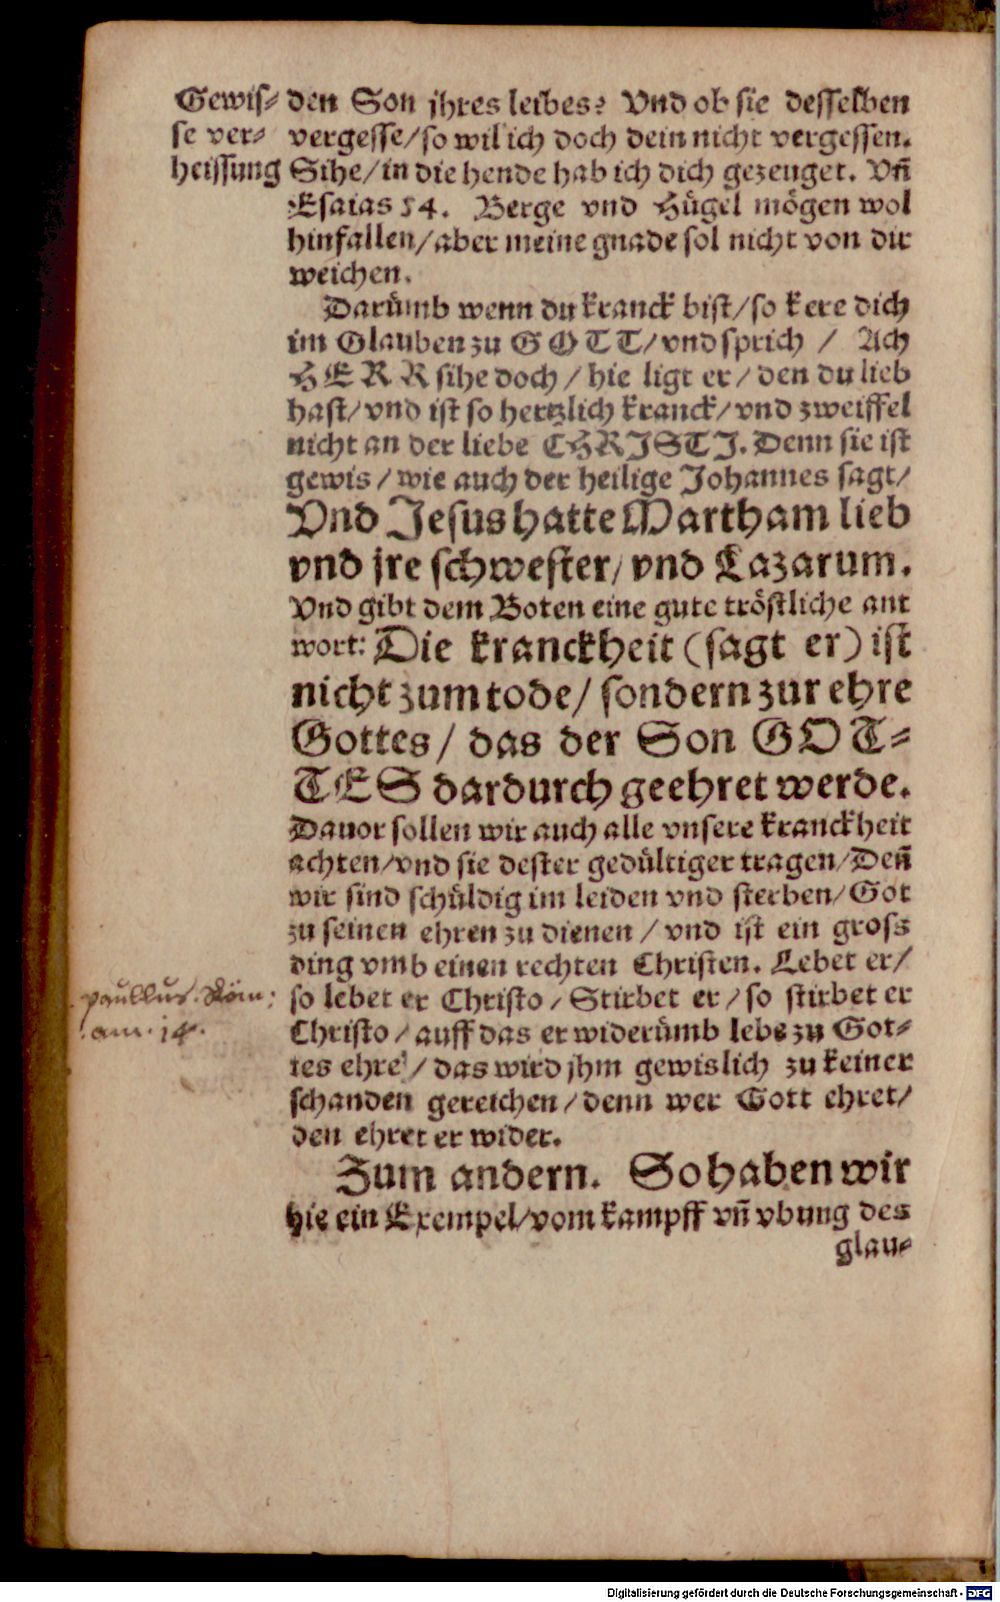 Gewis-
se ver-
heissung
den Son jhres leibes? Vnd ob sie desselben
vergesse/so wil ich doch dein nicht vergessen.
Sihe/in die hende hab ich dich gezeuget. Vn̄
Esaias 54. Berge vnd Hügel mögen wol
hinfallen/aber meine gnade sol nicht von dir
weichen.
Darümb wenn du kranck bist/so kere dich
im Glauben zu GOTT/vnd sprich / Ach
HERR sihe doch / hie ligt er/ den du lieb
hast/vnd ist so hertzlich kranck/vnd zweiffel
nicht an der liebe CHRISTI. Denn sie ist
gewis / wie auch der heilige Johannes sagt/
Vnd Jesus hatte Martham lieb
vnd jre schwester/ vnd Lazarum.
Vnd gibt dem Boten eine gute tröstliche ant
wort: Die kranckheit (sagt er) ist
nicht zum tode/ sondern zur ehre
Gottes/ das der Son GOT-
TES dardurch geehret werde.
Dauor sollen wir auch alle vnsere kranckheit
achten/vnd sie dester gedültiger tragen/Den̄
wir sind schüldig im leiden vnd sterben/Got
zu seinen ehren zu dienen / vnd ist ein gross
ding vmb einen rechten Christen. Lebet er/
so lebet er Christo / Stirbet er / so stirbet er
Christo / auff das er widerümb lebe zu Got-
tes ehre / das wird jhm gewislich zu keiner
schanden gereichen / denn wer Gott ehret/
den ehret er wider.
paullus. Röm:
am. 14.
Zum andern. So haben wir
hie ein Exempel/vom kampff vn̄ vbung des
glau-
Digitalisierung gefördert durch die Deutsche Forschungsgemeinschaft - DFG